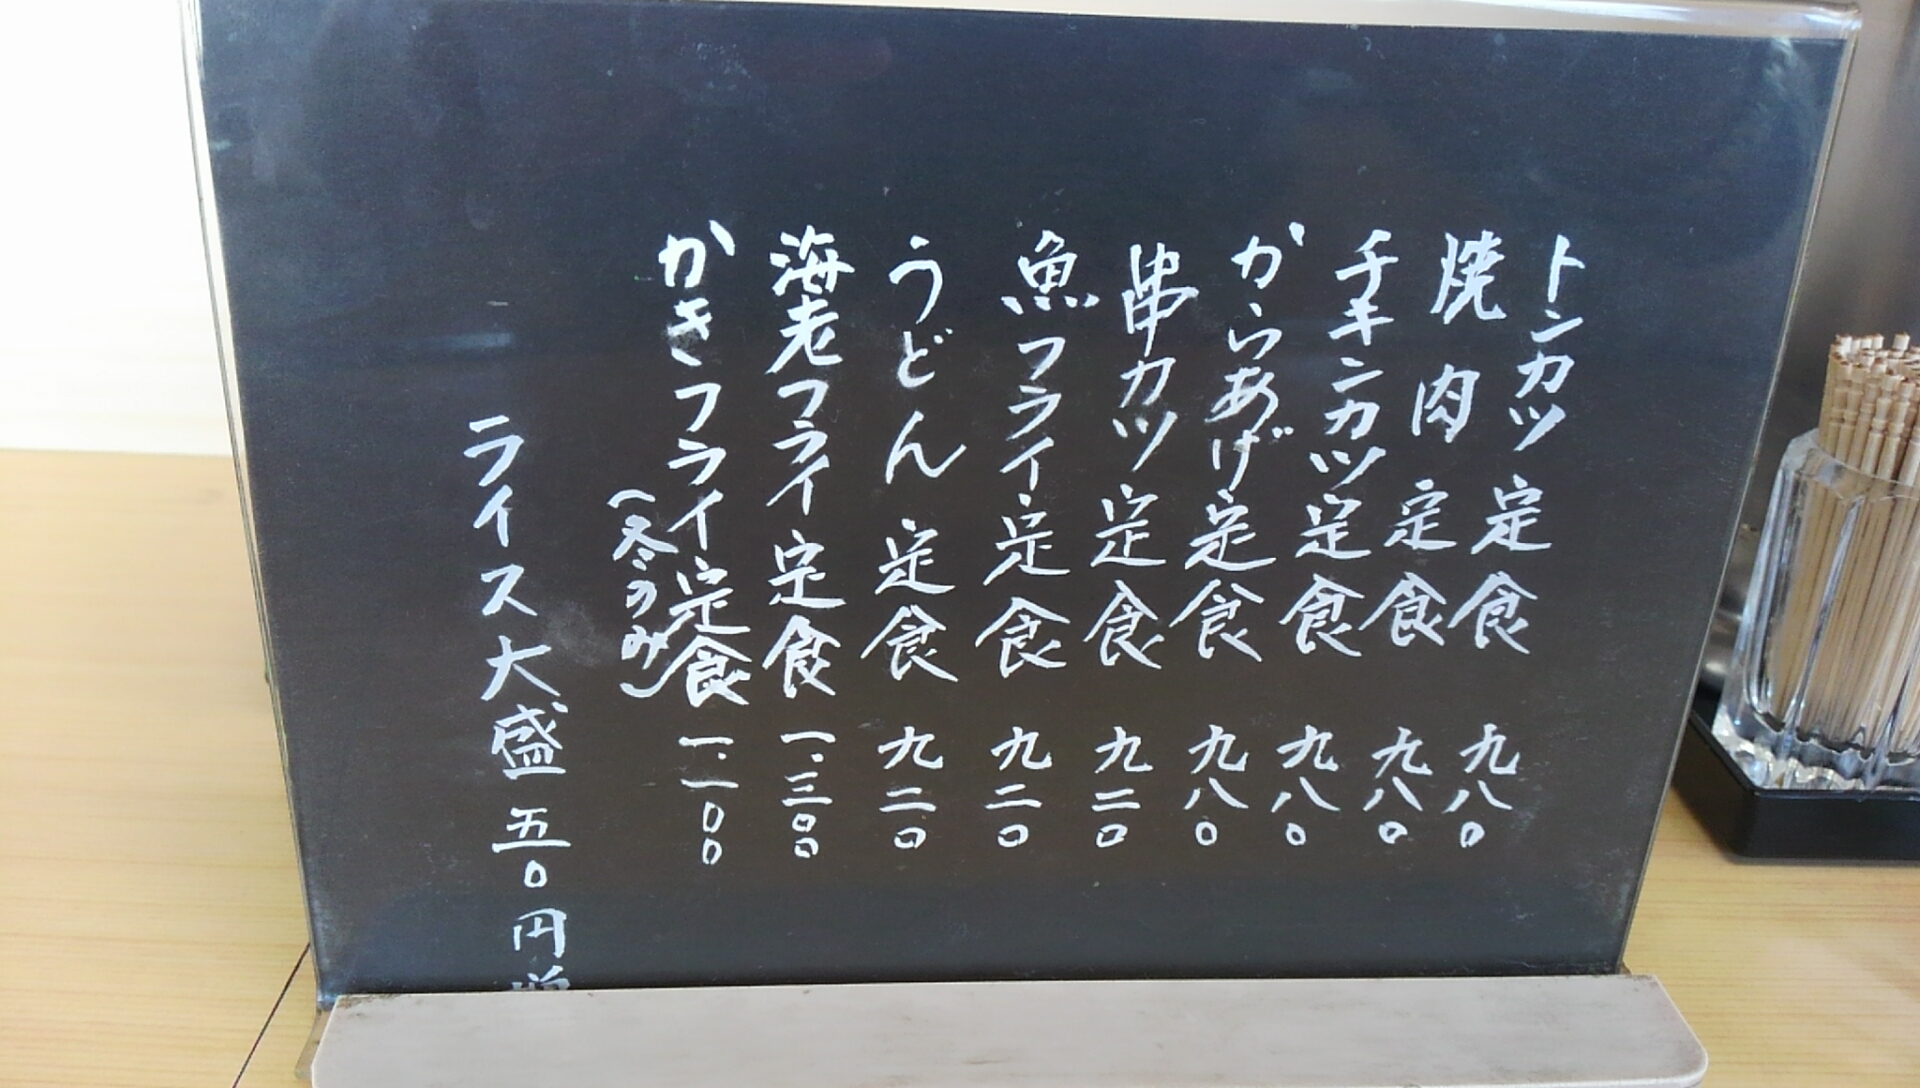 トンカツ定食 九八〇
焼肉定食 九八〇
チキンカツ定食 九八〇
からあげ定食 九八〇
串カツ定食 九二〇
魚フライ定食 九二〇
うどん定食 九二〇
海老フライ定食 一、三〇〇
かきフライ定食 一、一〇〇
(冬のみ)
ライス大盛五〇円